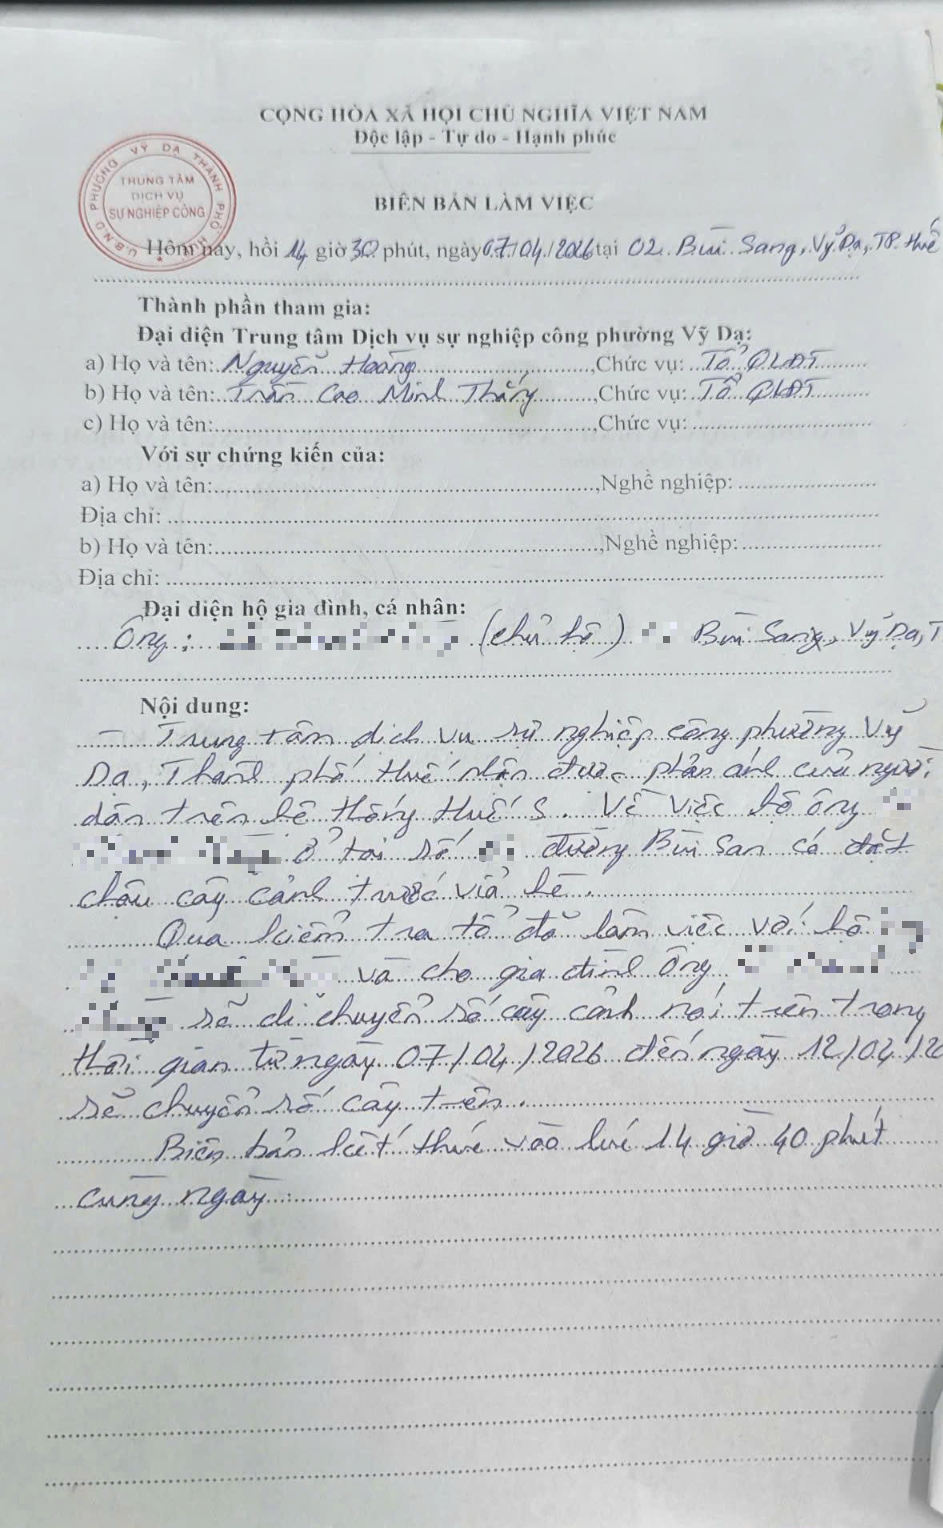 CỘNG HÒA XÃ HỘI CHỦ NGHĨA VIỆT NAM
Độc lập - Tự do - Hạnh phúc
U.B.N.D PHƯỜNG VỸ DẠ THÀNH PHỐ
TRUNG TÂM
DỊCH VỤ
SỰ NGHIỆP CÔNG
BIÊN BẢN LÀM VIỆC
Hôm nay, hồi 14 giờ 30 phút, ngày 07/04/2026 tại 02 Bùi Sang, Vỹ Dạ, TP Huế
Thành phần tham gia:
Đại diện Trung tâm Dịch vụ sự nghiệp công phường Vỹ Dạ:
a) Họ và tên: Nguyễn Hoàng, Chức vụ: Tổ QLĐT
b) Họ và tên: Trần Cao Minh Thắng, Chức vụ: Tổ QLĐT
c) Họ và tên:, Chức vụ:
Với sự chứng kiến của:
a) Họ và tên:, Nghề nghiệp:
Địa chỉ:
b) Họ và tên:, Nghề nghiệp:
Địa chỉ:
Đại diện hộ gia đình, cá nhân:
Ông: (chủ hộ) Bùi Sang, Vỹ Dạ, T
Nội dung:
- Trung tâm dịch vụ sự nghiệp công phường Vỹ
Dạ, Thành phố Huế nhận được phản ánh của người
dân trên hệ thống Huế S. Về việc hộ ông
ở tại số đường Bùi San có đặt
chậu cây cảnh trước vỉa hè.
Qua kiểm tra tổ đã làm việc với hộ
và cho gia đình Ông
sẽ di chuyển số cây cảnh nói trên trong
thời gian từ ngày 07/04/2026 đến ngày 12/04/20
sẽ chuyển số cây trên.
Biên bản kết thúc vào lúc 14 giờ 40 phút
cùng ngày.